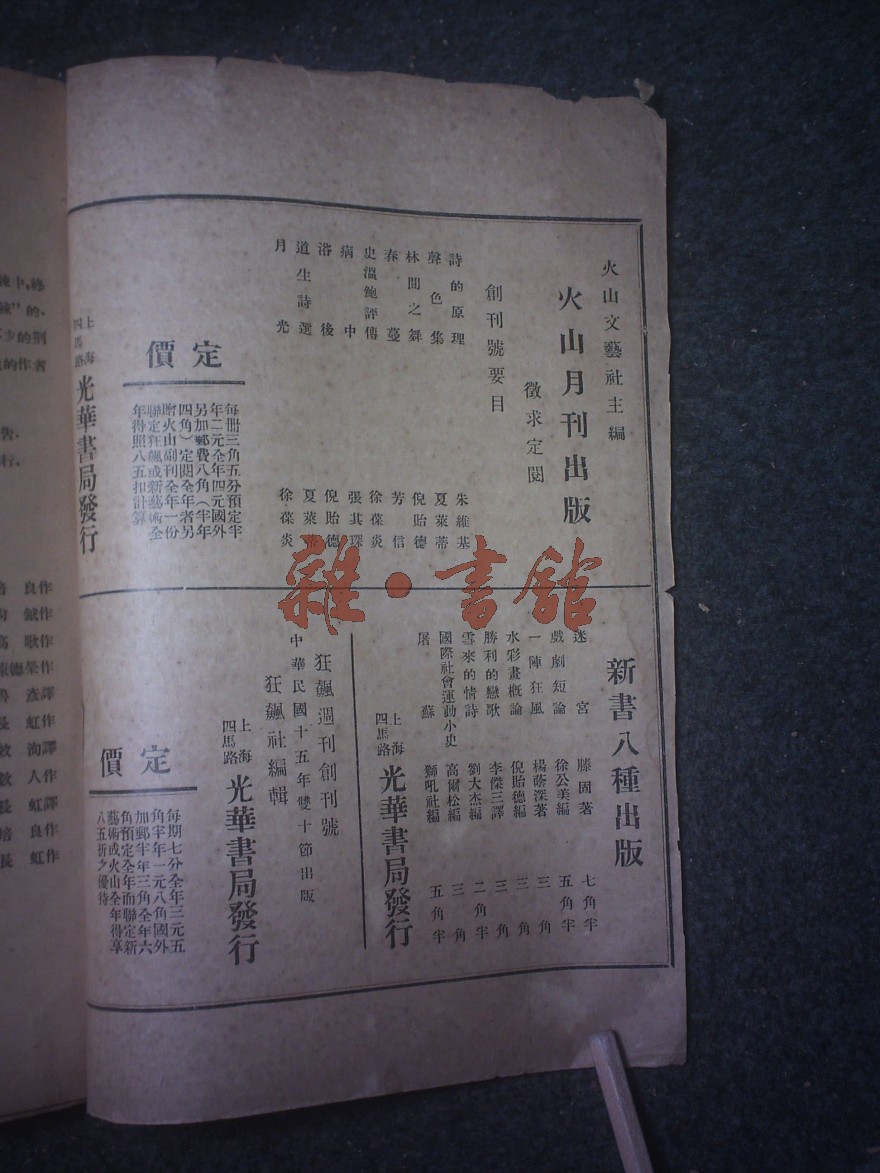 火山文藝社主編
火山月刊出版
徵求定閱
創刊號要目
詩的原理 朱維基
聲色集 夏萊蒂
林間之舞 倪貽德
春蔓 芳信
史溫鮑評傳 徐葆炎
病中 張其琛
浴後 倪貽德
道生詩選 夏萊蒂
月光 徐葆炎
定價
每冊三角五分預定半
年二元全年四元國外
另加郵費八角（半年
四角）定閱全年者另
贈火山副刊全年一份
聯定狂飆或新藝術全
年得照八五扣計算
上海
四馬路
光華書局發行
新書八種出版
迷宮 滕固著 七角半
戲劇短論 徐公美編 五角半
一陣狂風 楊蔭深著 三角
水彩畫概論 倪貽德編 三角
勝利的戀歌 李傑三譯 三角
雪來的情詩 劉大杰編 二角半
國際社會運動小史 高爾松編 三角
屠蘇 獅吼社編 五角半
上海
四馬路
光華書局發行
狂飆週刊創刊號
中華民國十五年雙十節出版
狂飆社編輯
上海
四馬路
光華書局發行
定價
每期七分全年三元五
角半年一元八角國外
加郵半年三角全年六
角預定全年而聯定新
藝術或火山全年得享
八五折之優待
雜·書館
中,修
的,
步的刑
的作者
告.
行.
良作
鉞作
歌作
德榮作
彥譯
虹作
洵譯
人作
虹譯
良作
長虹作